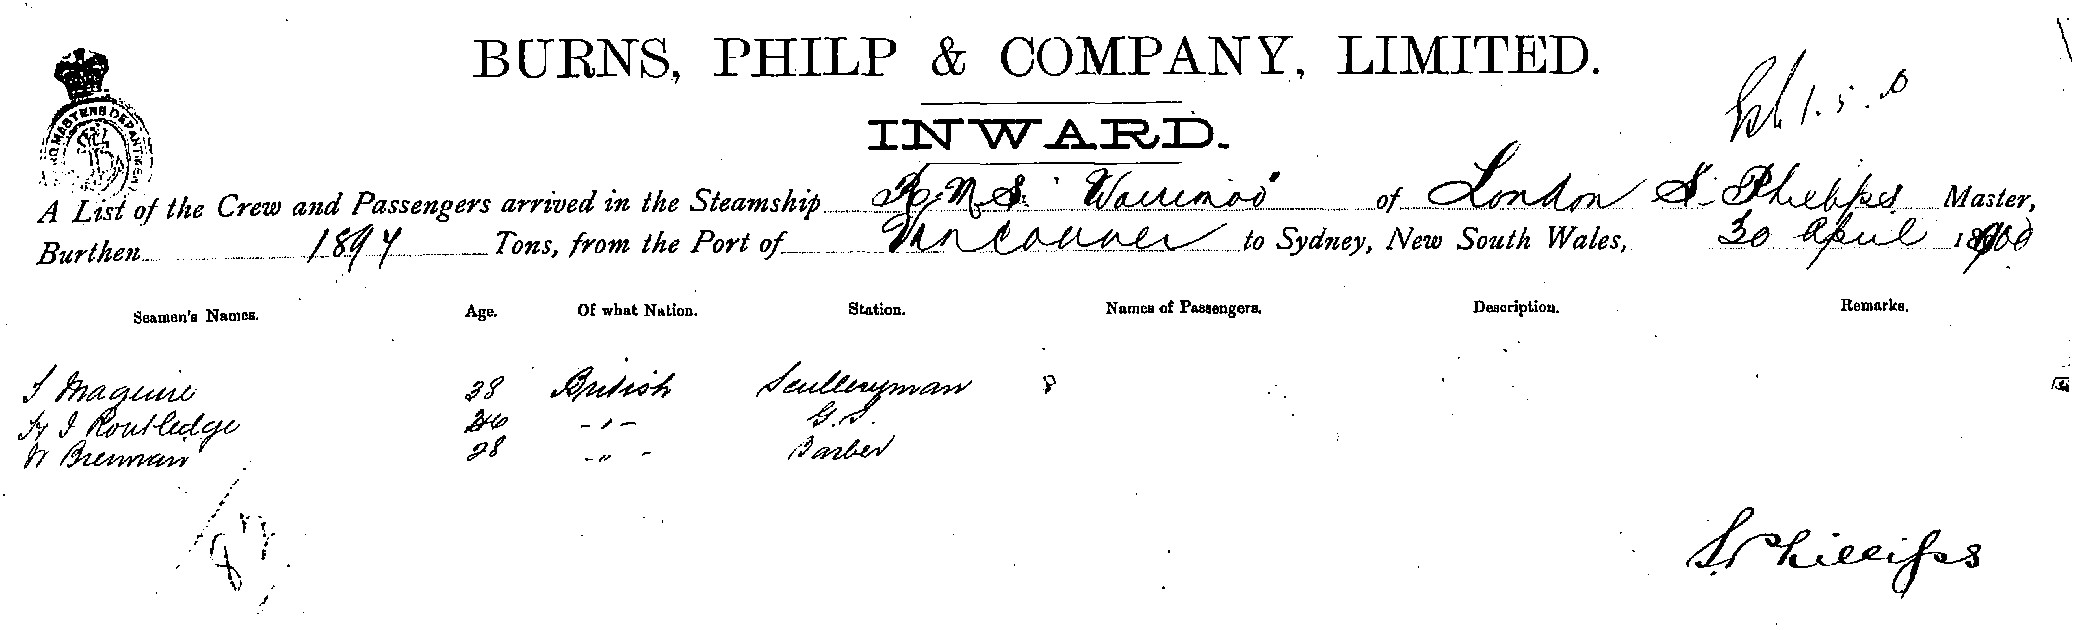 BURNS, PHILP & COMPANY, LIMITED.
INWARD.
1.5.0
A List of the Crew and Passengers arrived in the Steamship R.M.S. "Warrimoo" of London S. Phillips Master,
Burthen 1894 Tons, from the Port of Vancouver to Sydney, New South Wales, 30 April 1900
Seamen's Names. Age. Of what Nation. Station. Names of Passengers. Description. Remarks.
Maguire 38 British Sculleryman
Routledge -"- G.S.
W Brennan 28 -"- Barber
87
S. Phillips